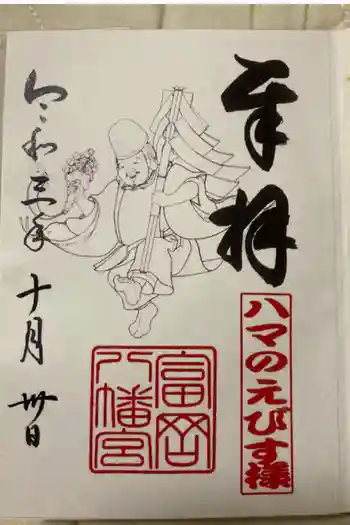 奉拝
ハマのえびす様
富岡
八幡宮
令和三年
十月
卅日